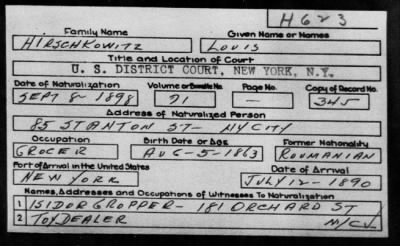 H623
Family Name Given Name or Names
HIRSCHKOWITZ LOUIS
Title and Location of Court
U. S. DISTRICT COURT, NEW YORK, N.Y.
Date of Naturalization Volume or Bundle No. Page No. Copy of Record No.
SEPT 8 1898 71 — 345
Address of Naturalized Person
85 STANTON ST- NYCITY
Occupation Birth Date or Age Former Nationality
GROCER AUG-5-1863 ROUMANIAN
Port of Arrival in the United States Date of Arrival
NEW YORK JULY 12-1890
Names, Addresses and Occupations of Witnesses To Naturalization
1 ISIDOR GROPPER- 181 ORCHARD ST
2 TOY DEALER NYCY